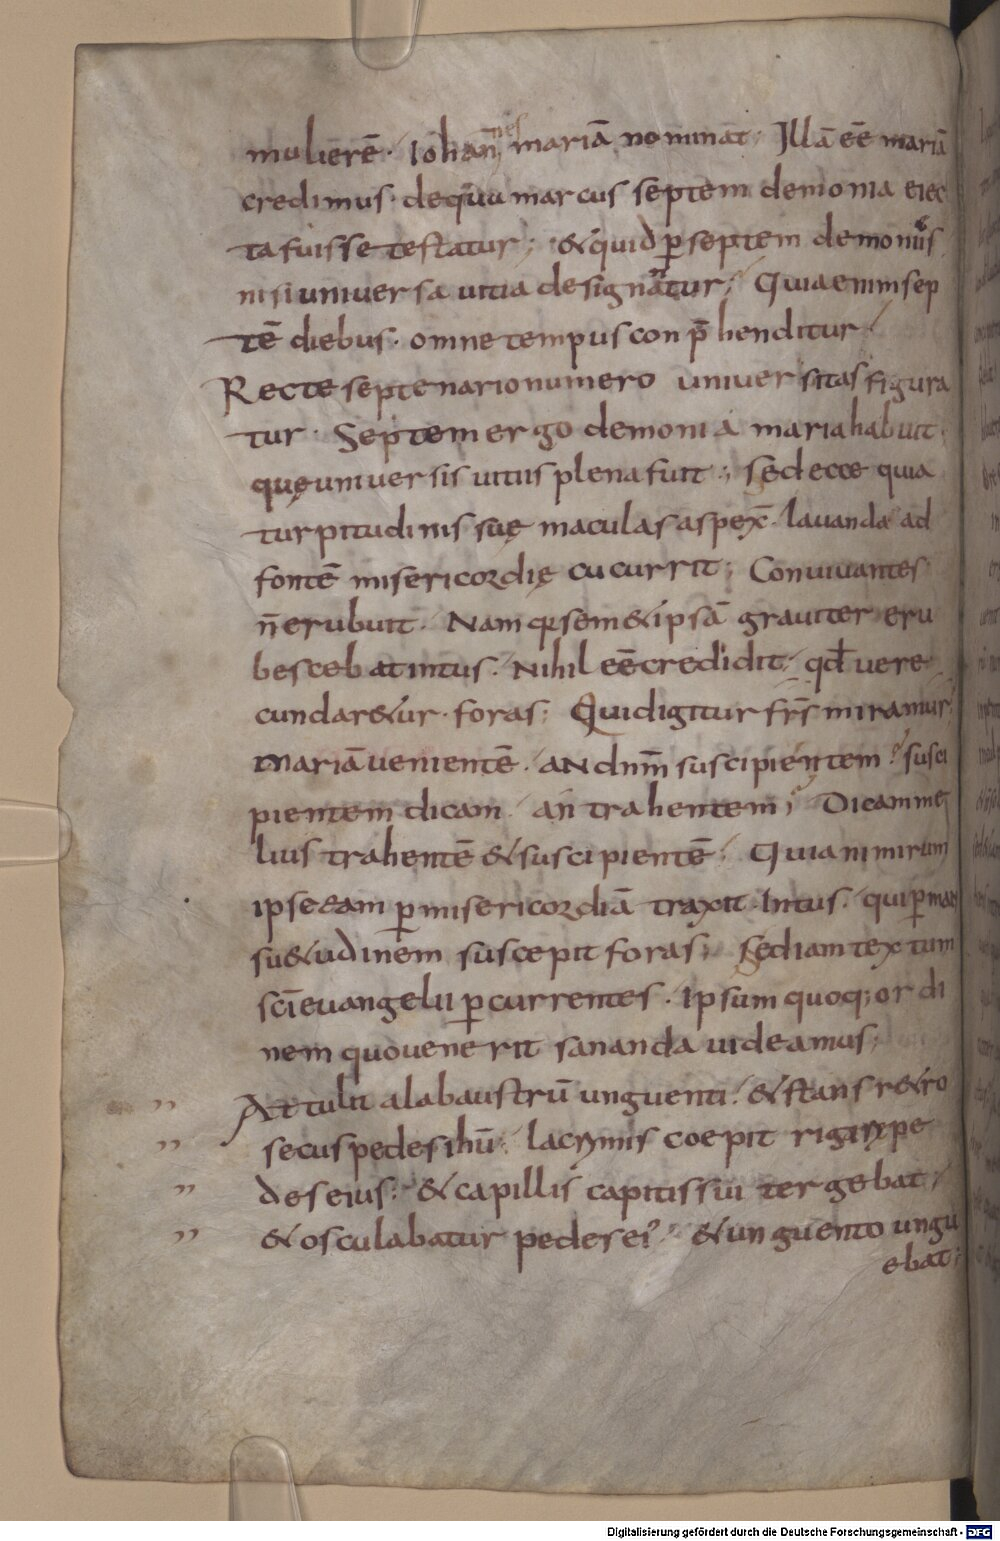 mulierē· Iohann̄nes mariā nominat· Illā eē mariā
credimus· dequa marcus septem demonia eiec
ta fuisse testatur; & quid p̱ septem demoniis
nisi universa uitia designantur; Quia enim sep
tē diebus· omne tempus conp̄henditur
Recte septenario numero universitas figura
tur· Septem ergo demonia maria habuit
quę universis uitiis plena fuit; sed ecce quia
turpitudinis suę maculas aspex̄· lauanda ad
fontē misericordię cucurrit; Conuiuantes
n̄ erubuit· Nam q̱ semꝫipsā grauiter eru
bescebat intus· Nihil eē credidit· qđ vere
cundar&ur· foras; Quid igitur fr̄s miramur
mariā uenientē· an dnm̄ suscipientem? susci
pientem dicam· an trahentem; Dicam me
lius trahentē & suscipientē; Quia nimirum
ipse eam p̱ misericordiā traxit intus· qui p̱ man
su&udinem suscepit foras; Sed iam textum
sc̄i euangelii p̱currentes· Ipsum quoq; ordi
nem quo uenerit sananda uideamus;
Attulit alabaustrū unguenti· & stans r&ro
secus pedes ihū· lacrymis coepit rigare pe
des eius; & capillis capitis sui tergebat;
& osculabatur pedes ei᾿ & unguento ungu
ebat;
Digitalisierung gefördert durch die Deutsche Forschungsgemeinschaft - DFG